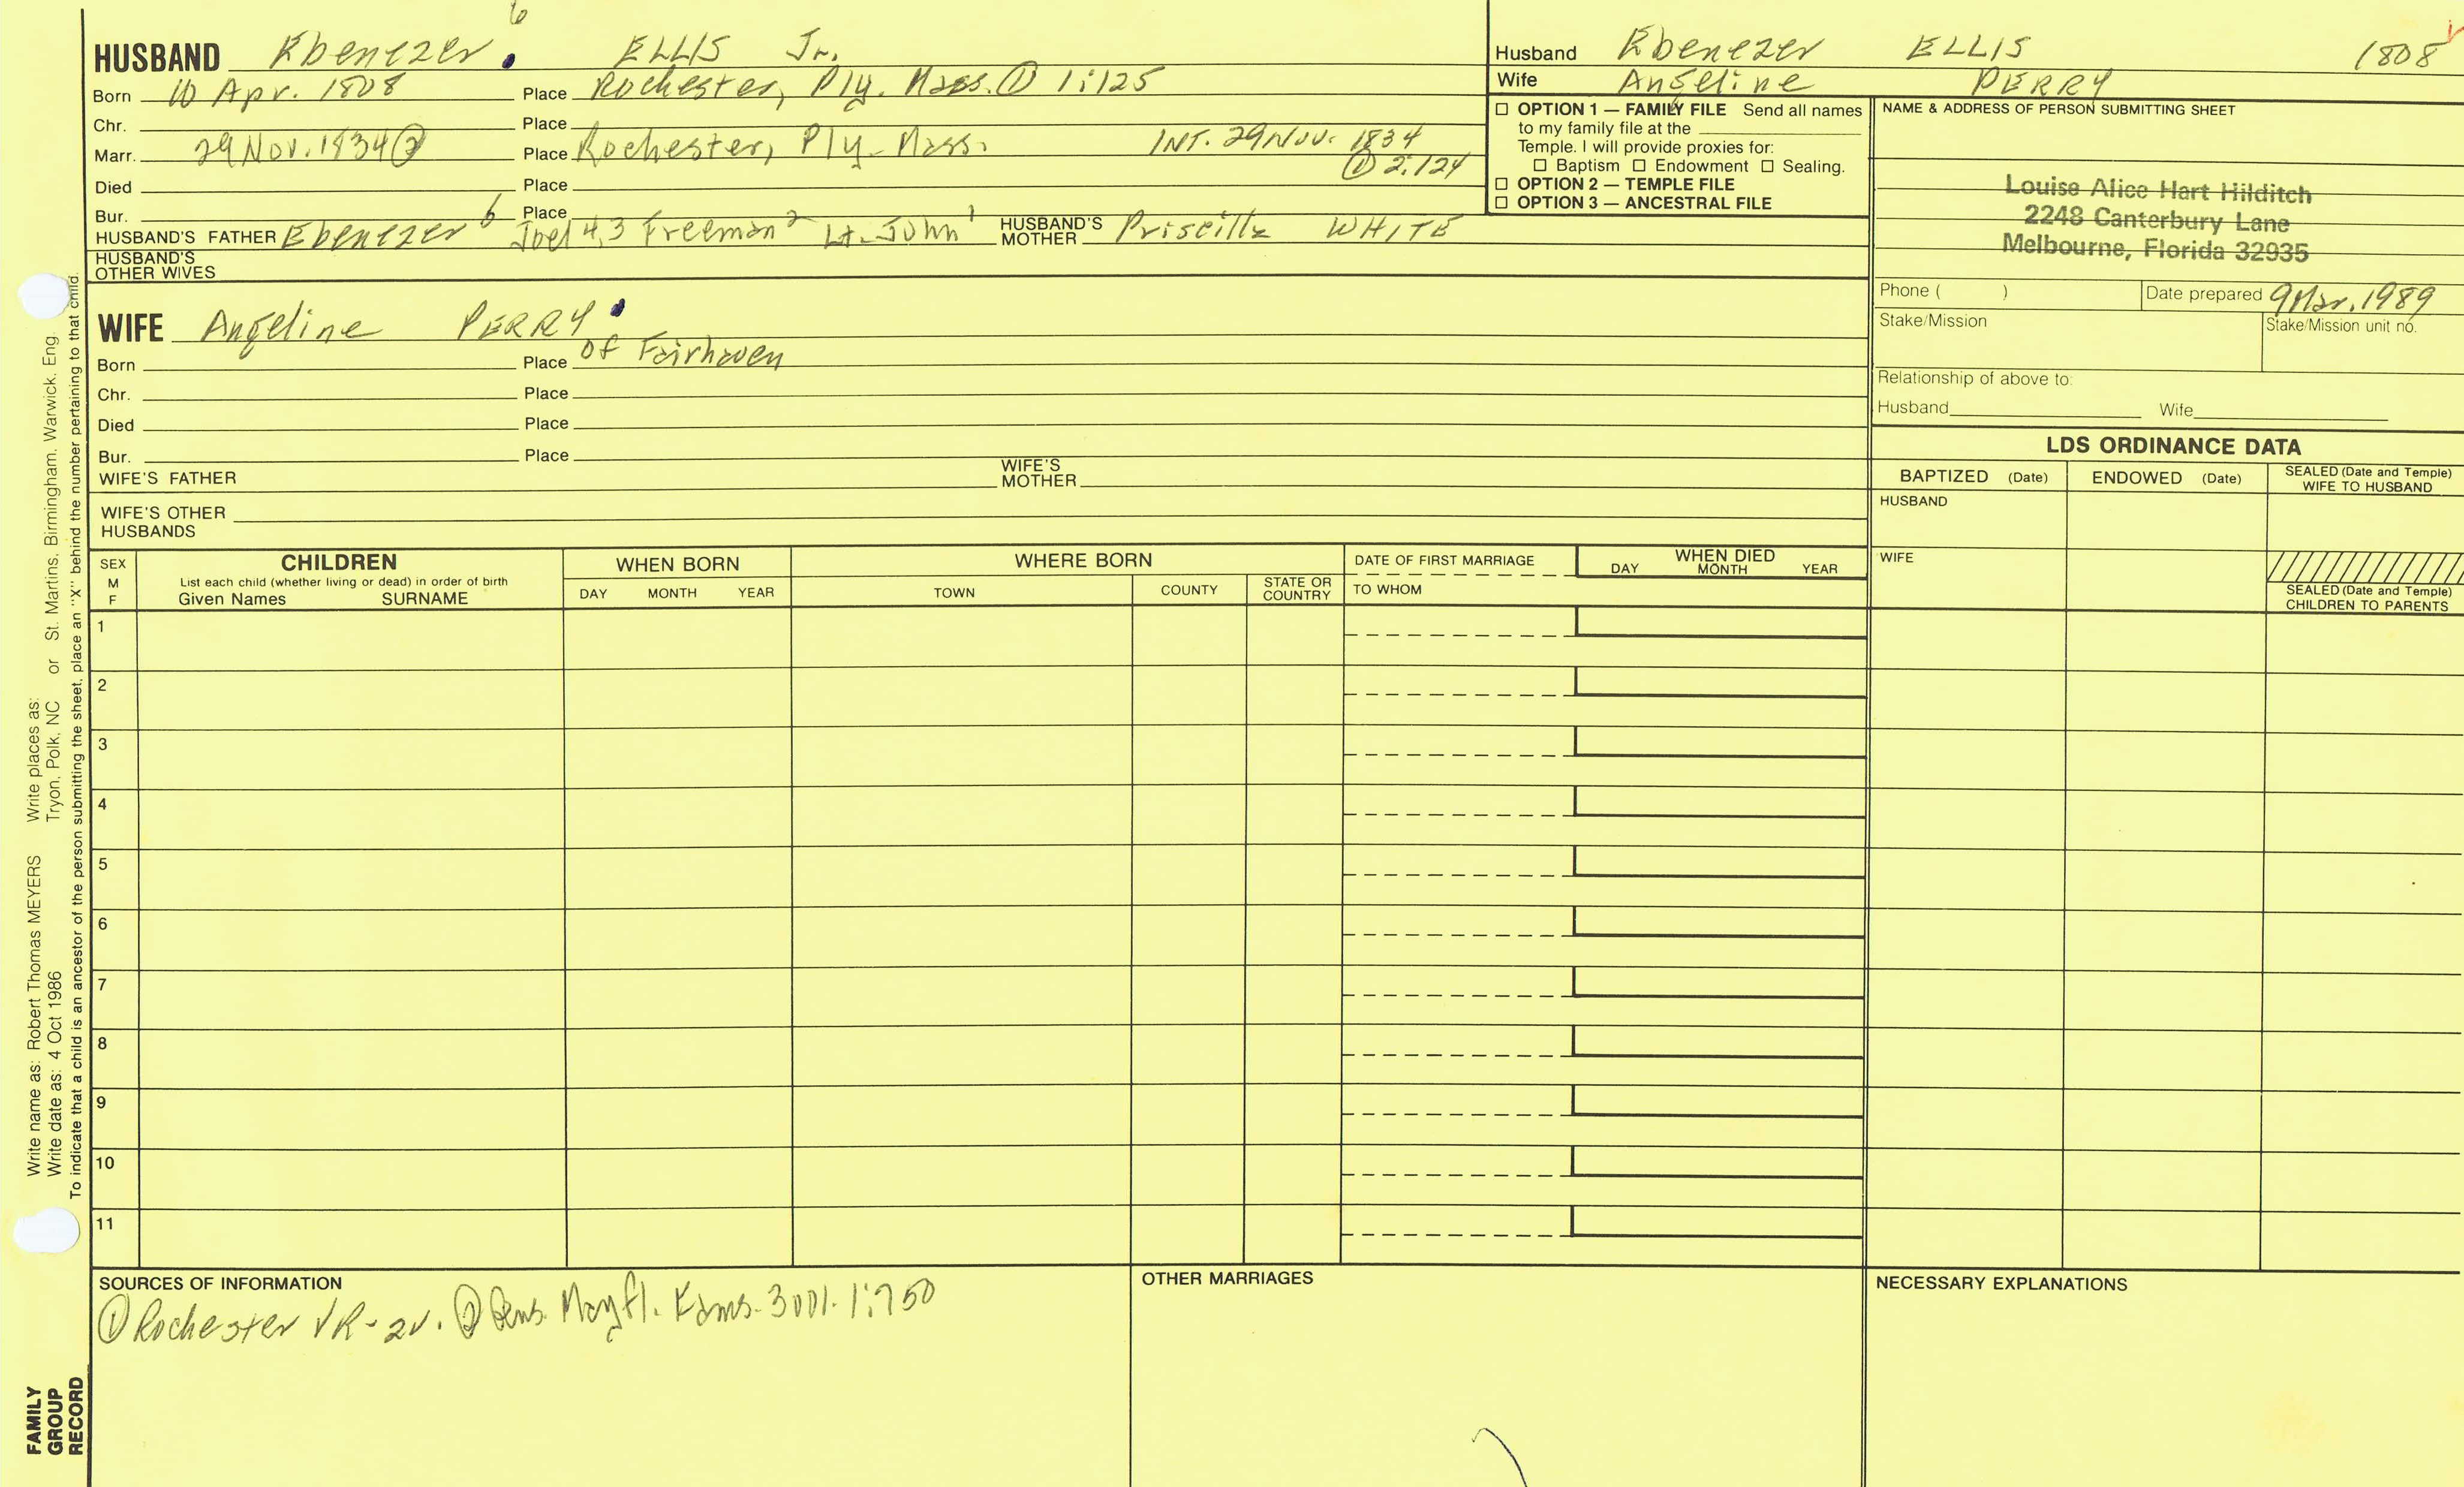 6
HUSBAND Ebenezer ELLIS Jr.
Born 10 Apr. 1808 Place Rochester, Ply. Mass. ① 1:125
Chr. Place
Marr. 29 Nov. 1834 ② Place Rochester, Ply. Mass. INT. 29 Nov. 1834
① 2:124
Died Place
Bur. Place
HUSBAND'S FATHER Ebenezer 6 Joel 4,3 Freeman 2 Lt. John 1 HUSBAND'S MOTHER Priscilla WHITE
HUSBAND'S OTHER WIVES
WIFE Angeline PERRY
Born Place of Fairhaven
Chr. Place
Died Place
Bur. Place
WIFE'S FATHER WIFE'S MOTHER
WIFE'S OTHER HUSBANDS
Husband Ebenezer ELLIS 1808
Wife Angeline PERRY
☐ OPTION 1 — FAMILY FILE Send all names
to my family file at the
Temple. I will provide proxies for:
☐ Baptism ☐ Endowment ☐ Sealing.
☐ OPTION 2 — TEMPLE FILE
☐ OPTION 3 — ANCESTRAL FILE
NAME & ADDRESS OF PERSON SUBMITTING SHEET
Louise Alice Hart Hilditch
2248 Canterbury Lane
Melbourne, Florida 32935
Phone ( ) Date prepared 9 Mar. 1989
Stake/Mission Stake/Mission unit no.
Relationship of above to:
Husband Wife
LDS ORDINANCE DATA
BAPTIZED (Date) ENDOWED (Date) SEALED (Date and Temple)
WIFE TO HUSBAND
HUSBAND
WIFE
SEALED (Date and Temple)
CHILDREN TO PARENTS
SEX
M
F
CHILDREN
List each child (whether living or dead) in order of birth
Given Names SURNAME
WHEN BORN
DAY MONTH YEAR
WHERE BORN
TOWN COUNTY STATE OR COUNTRY
DATE OF FIRST MARRIAGE
TO WHOM
WHEN DIED
DAY MONTH YEAR
1
2
3
4
5
6
7
8
9
10
11
SOURCES OF INFORMATION
① Rochester VR-2v. ② Mayfl. 1:750
OTHER MARRIAGES
NECESSARY EXPLANATIONS
Write name as: Robert Thomas MEYERS Write places as:
Write date as: 4 Oct 1986 Tryon, Polk, NC or St. Martins, Birmingham, Warwick, Eng.
To indicate that a child is an ancestor of the person submitting the sheet, place an "X" behind the number pertaining to that child.
FAMILY
GROUP
RECORD